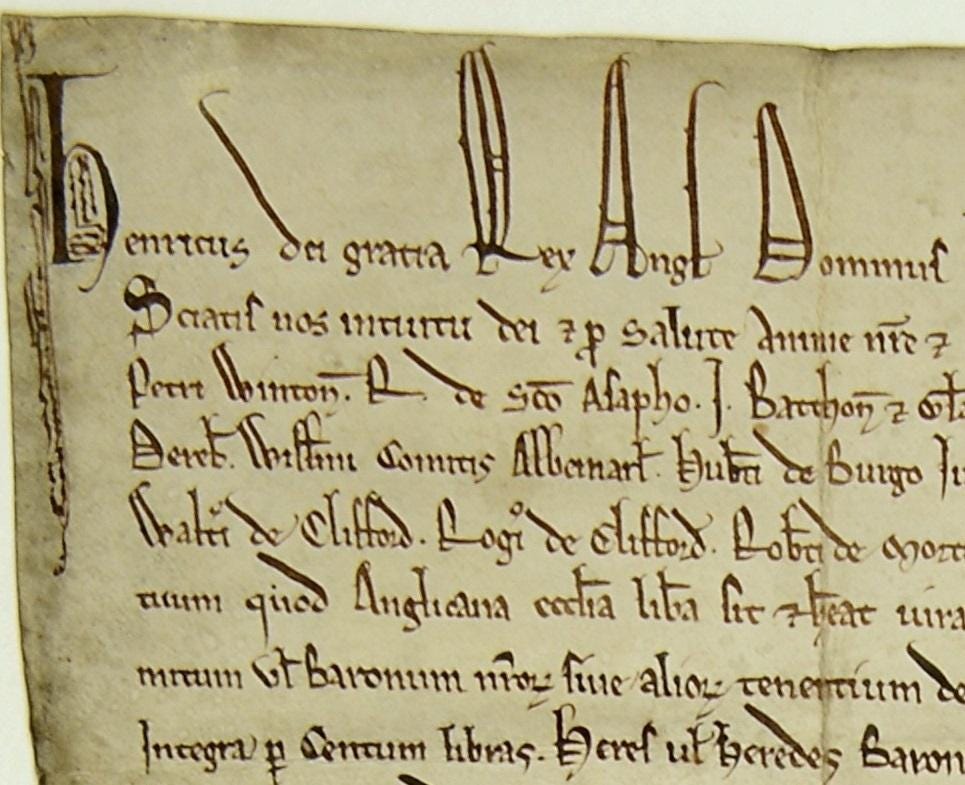 Henricus dei gratia Rex Angl Dominus
Sciatis nos intuitu dei ⁊ p̱ salute anime nr̄e ⁊
Petri Wintoñ. R. de Sc̄o Asapho. J. Batthoñ ⁊
Dereb̄. Will̄mi Comitis Albemarl̄. Hub̄ti de Burgo
Walt̄i de Clifford. Roḡi de Clifford. Rob̄ti de
tuum quod Anglicana eccl̄ia lib̄a sit ⁊ h̄eat iura
mitum vl̄ Baronum nr̄oꝝ siue alioꝝ tenentium de
Integra p̱ Centum libras. Heres ul̄ heredes Baron